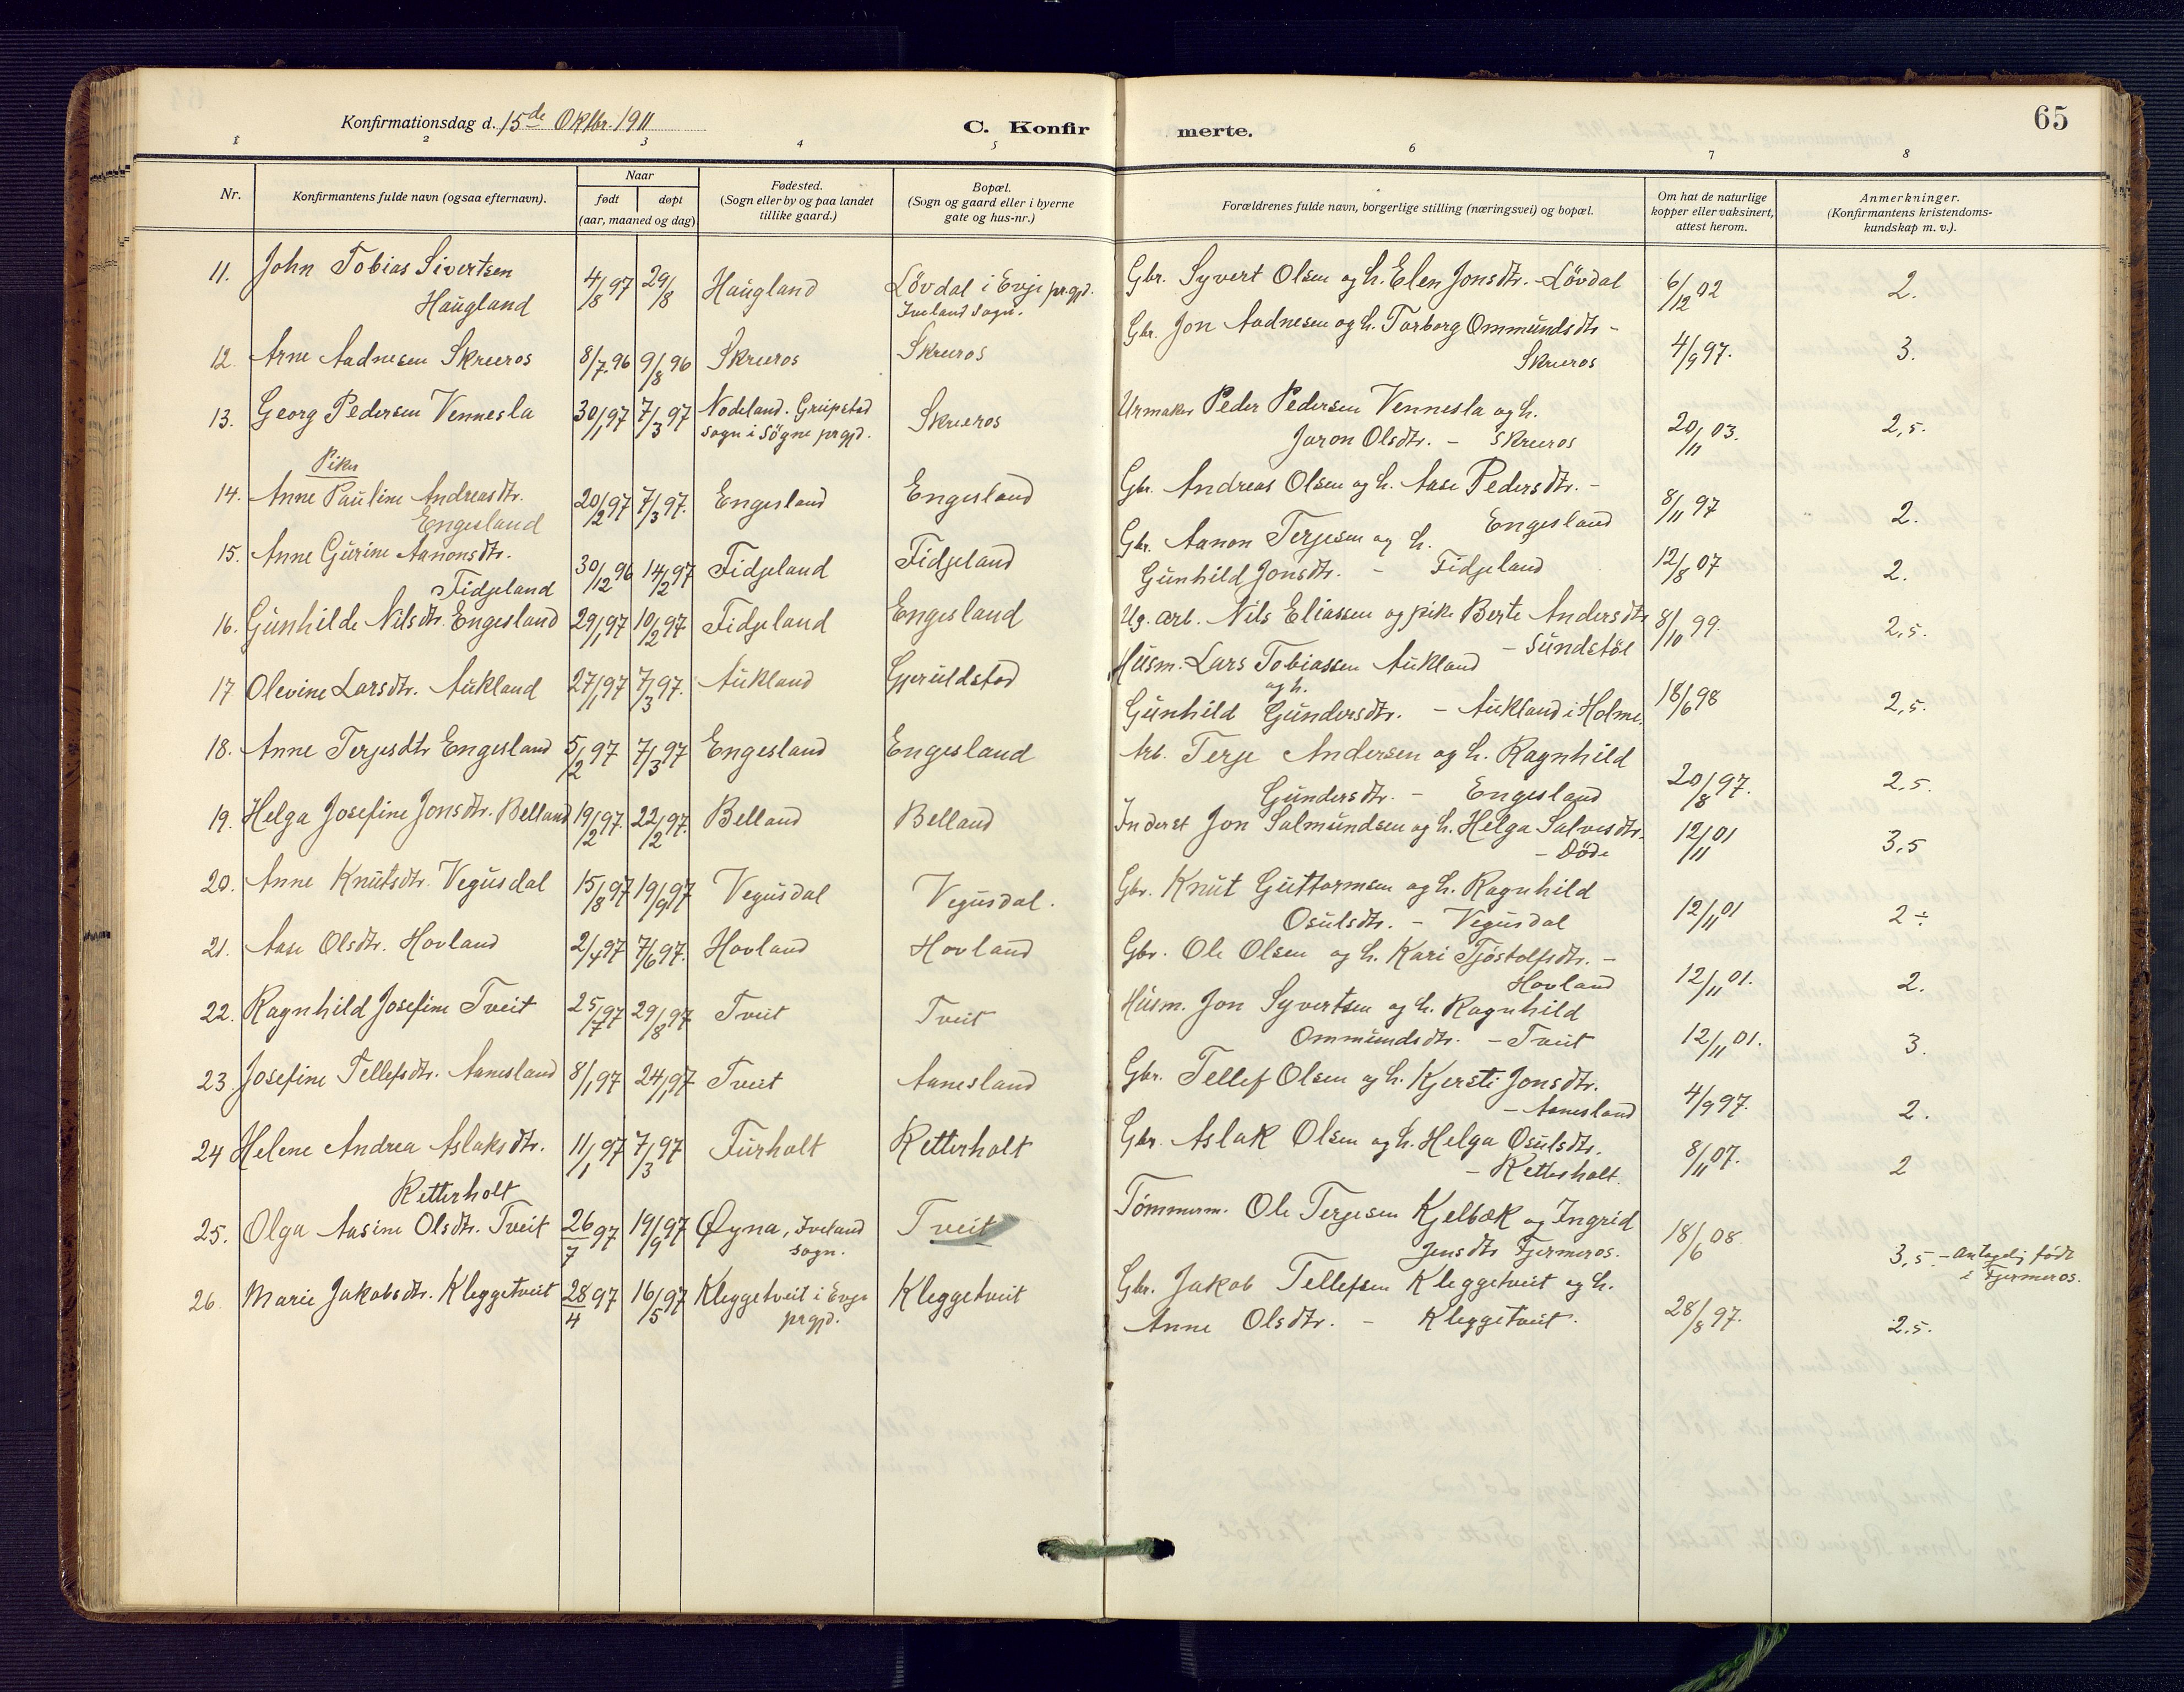 65
Konfirmationsdag d. 15de Oktbr. 1911
C. Konfirmerte.
1 2 3 4 5 6 7 8
Nr.
Konfirmantens fulde navn (ogsaa efternavn).
Naar
født døpt
(aar, maaned og dag)
Fødested.
(Sogn eller by og paa landet
tillike gaard.)
Bopæl.
(Sogn og gaard eller i byerne
gate og hus-nr.)
Forældrenes fulde navn, borgerlige stilling (næringsvei) og bopæl.
Om hat de naturlige
kopper eller vaksinert,
attest herom.
Anmerkninger.
(Konfirmantens kristendoms-
kundskap m. v.).
11. John Tobias Sivertsen
Haugland
4/8 97 29/8 Haugland Lövdal i Evje prgjd.
Iveland sogn.
Gbr. Syvert Olsen og h. Elen Jonsdtr. - Lövdal 6/12 02 2.
12. Arne Aadnesen Skreros 8/7 96 9/8 96 Skreros Skreros
Gbr. Jon Aadnesen og h. Torborg Ommundsdtr -
Skreros 4/9 97. 3.
13. Georg Pedersen Vennesla 30/1 97 7/3 97 Nodeland. Greipstad
sogn i Sögne prgjd. Skreros
Urmaker Peder Pedersen Vennesla og h.
Joron Olsdtr. - Skreros 20/11 03. 2,5.
Piker
14. Anne Pauline Andreasdtr.
Engesland
20/2 97 7/3 97. Engesland Engesland
Gbr. Andreas Olsen og h. Aase Pedersdtr. -
Engesland 8/11 97 2.
15. Anne Gurine Aanonsdtr.
Fidjeland
30/12 96 14/2 97 Fidjeland Fidjeland
Gbr. Aanon Terjesen og h.
Gunhild Jonsdtr. - Fidjeland 12/8 07 2.
16. Gunhilde Nilsdtr. Engesland 29/1 97 10/2 97 Fidjeland Engesland
Ug. arb. Nils Eliassen og pike Berte Andersdtr
- Sundstöl 8/10 99. 2,5.
17 Olevine Larsdtr. Aukland 27/1 97 7/3 97. Aukland Gjeruldstad
Husm. Lars Tobiassen Aukland
og h.
Gunhild Gundersdtr. - Aukland i Holme. 18/6 98 2,5.
18. Anne Terjesdtr Engesland 5/2 97 7/3 97 Engesland Engesland
Arb. Terje Andersen og h. Ragnhild
Gundersdtr. - Engesland 20/8 97. 2,5.
19. Helga Josefine Jonsdtr. Belland 19/2 97. 22/2 97. Belland Belland
Inderst Jon Salmundsen og h. Helga Salvesdtr.
- Döde 12/11 01 3,5
20. Anne Knutsdtr. Vegusdal 15/8 97 19/9 97 Vegusdal Vegusdal.
Gbr. Knut Guttormsen og h. Ragnhild
Osulsdtr. - Vegusdal 12/11 01 2 ÷
21. Aase Olsdtr. Hovland 2/4 97 7/6 97. Hovland Hovland
Gbr. Ole Olsen og h. Kari Tjöstolfsdtr. -
Hovland 12/11 01. 2.
22. Ragnhild Josefine Tveit 25/7 97 29/8 97 Tveit Tveit
Husm. Jon Syvertsen og h. Ragnhild
Ommundsdtr. - Tveit 12/11 01. 3.
23. Josefine Tellefsdtr. Aanesland 8/1 97 24/1 97 Tveit Aanesland
Gbr. Tellef Olsen og h. Kjersti Jonsdtr.
- Aanesland 4/9 97. 2.
24 Helene Andrea Aslaksdtr.
Retterholt
11/1 97 7/3 97 Furholt Retterholt
Gbr. Aslak Olsen og h. Helga Osulsdtr.
- Retterholt. 8/11 07. 2
25. Olga Aasine Olsdtr. Tveit 26/7 97 19/9 97 Øyna, Iveland
sogn. Tveit
Tömmerm. Ole Terjesen Kjelbæk og Ingrid
Jensdtr Fjermeros. 18/6 08. 3,5 - Antagelig født
i Fjermeros.
26. Marie Jakobsdtr. Kleggetveit 28/4 97 16/5 97 Kleggetveit i Evje
prgjd. Kleggetveit
Gbr. Jakob Tellefsen Kleggetveit og h.
Anne Olsdtr. - Kleggetveit. 28/8 97. 2,5.